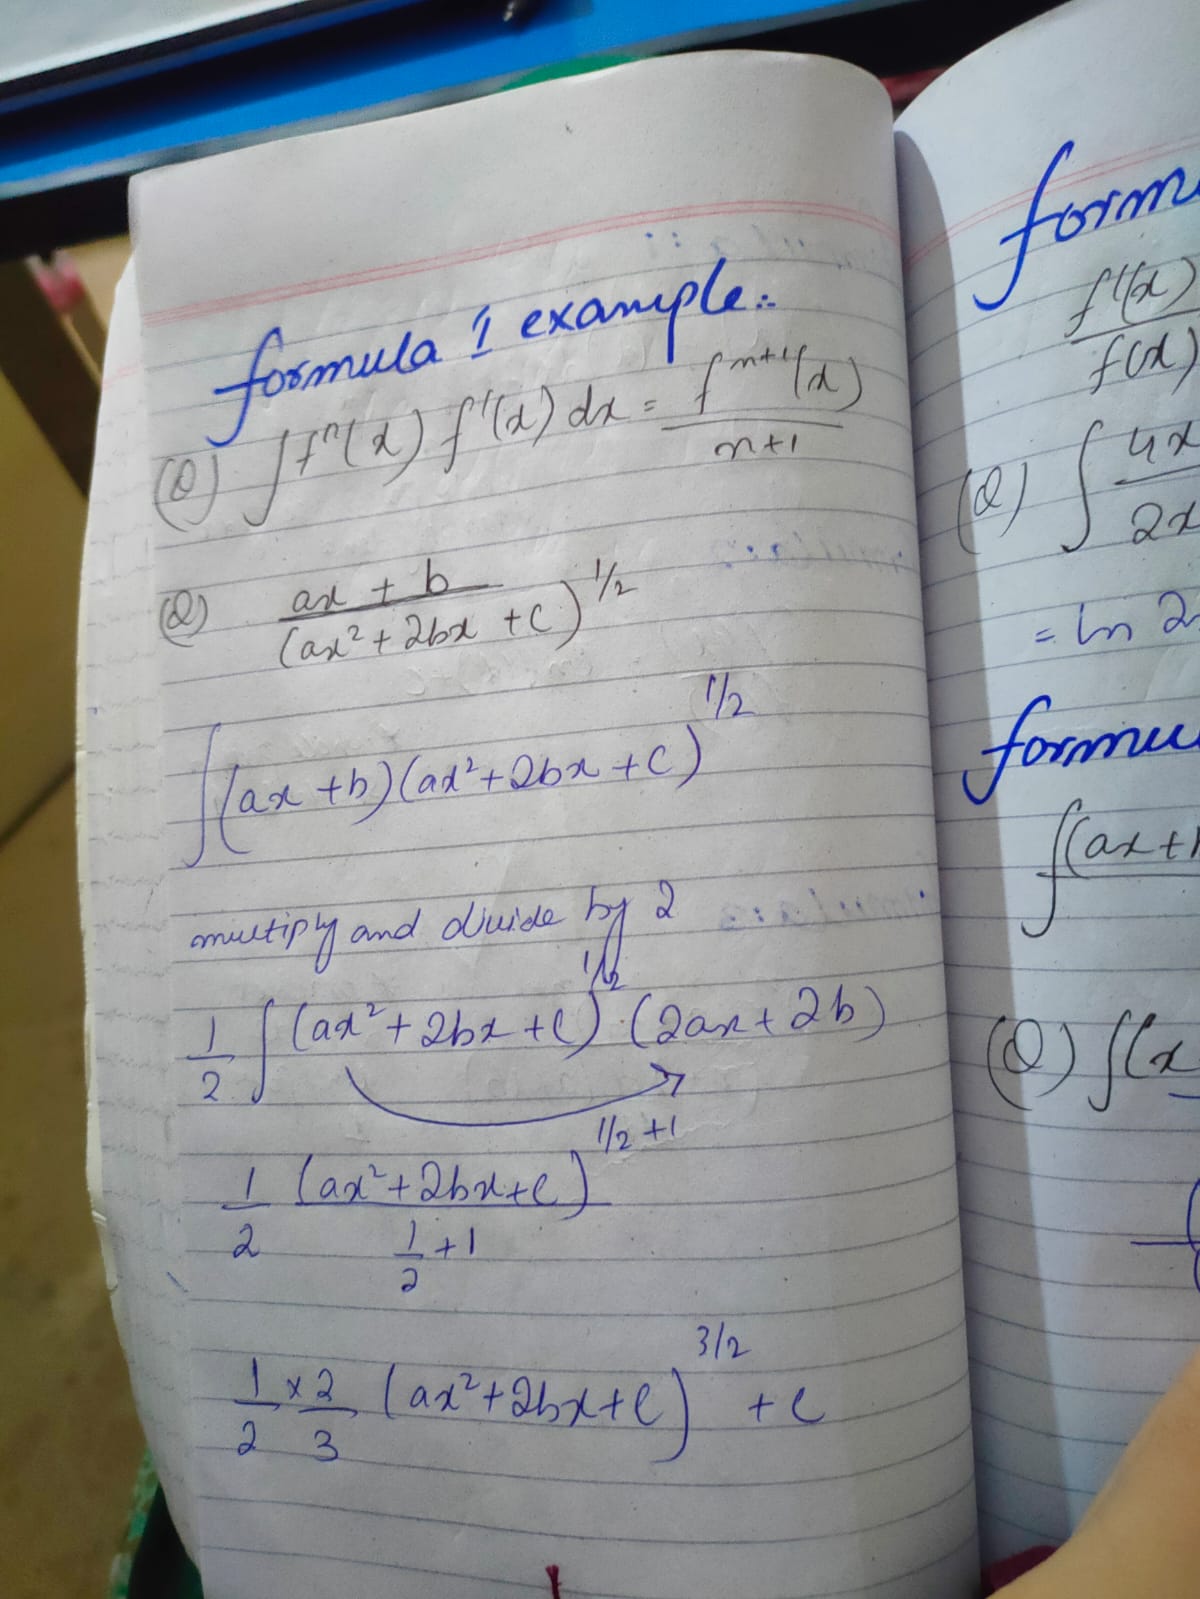 formula 1 example:-
(Q) ∫fⁿ(x) f'(x) dx = fⁿ⁺¹(x) / n+1
(Q) ax + b / (ax² + 2bx + c)^1/2
∫(ax + b)(ax² + 2bx + c)^1/2
multiply and divide by 2
1/2 ∫(ax² + 2bx + c)^1/2 · (2ax + 2b)
1/2 (ax² + 2bx + c)^1/2 +1 / 1/2 + 1
1/2 × 2/3 (ax² + 2bx + c)^3/2 + c
f'(x) / f(x)
(Q) ∫ 4x / 2x
= ln 2
∫(ax +
(Q) ∫(x